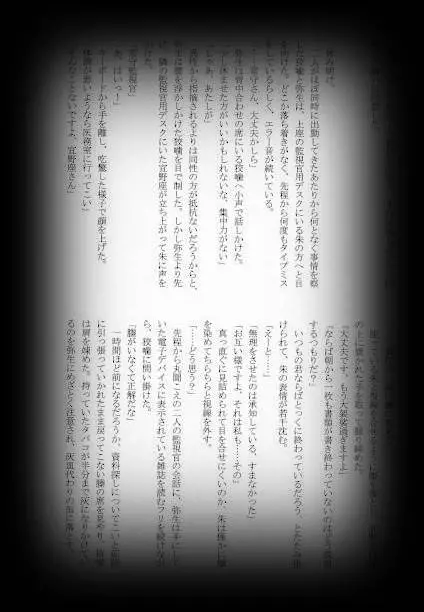 二人がほぼ同時に出勤してきたあたりから何となく事情を察
した狡噛と弥生は、上座の監視官用デスクにいる朱の方へと目
を向けた。どこか落ち着きがなく、先程から何度もタイプミス
をしているらしく、エラー音が続いている。
「常守さん、大丈夫かしら」
弥生は背中合わせの席にいる狡噛へ小声で話しかけた。
休ませた方がいいかもしれないな、集中力がない」
「じゃあ、あたしが」
異性から指摘されるよりは同性の方が抵抗ないだろうからと、
弥生は腰を浮かしかけた狡噛を目で制した。しかし弥生より先
に、隣の監視官用デスクにいた宜野座が立ち上がって朱に声を
かけた。
「常守監視官」
「あ、はいっ！」
キーボードから手を離し、吃驚した様子で顔を上げた。
体調が悪いようなら医務室に行ってこい」
そんなことないですよ、宜野座さん」
「大丈夫です。もう大袈裟過ぎますよ」
「ならば朝から一枚も書類が書き終わっていないのはどう説明
するつもりだ？」
いつもの君ならばとっくに終わっているだろう、とたたみ掛
けられて、朱の表情が若干沈む。
「えーと……」
「無理をさせたのは承知している、すまなかった」
「お互い様ですよ、それは私も……その」
真っ直ぐに見詰められて目を合せにくいのか、朱は僅かに頬
を染めてちらちらと視線を外す。
「……どう思う？」
先程から丸聞こえの二人の監視官の会話に、弥生は手にして
いた電子デバイスに表示されている雑誌を読むフリを続けなが
ら、狡噛に問い掛けた。
「縢がいなくて正解だな」
一時間ほど前になるだろうか、資料探しについてこいと征陸
に引っ張っていかれたまま戻ってこない縢の席を見やり、狡噛
は肩を竦めた。持っていたタバコが半分まで灰になりかけてい
るのを弥生にめざとく注意され、灰皿代わりの缶に落とす。